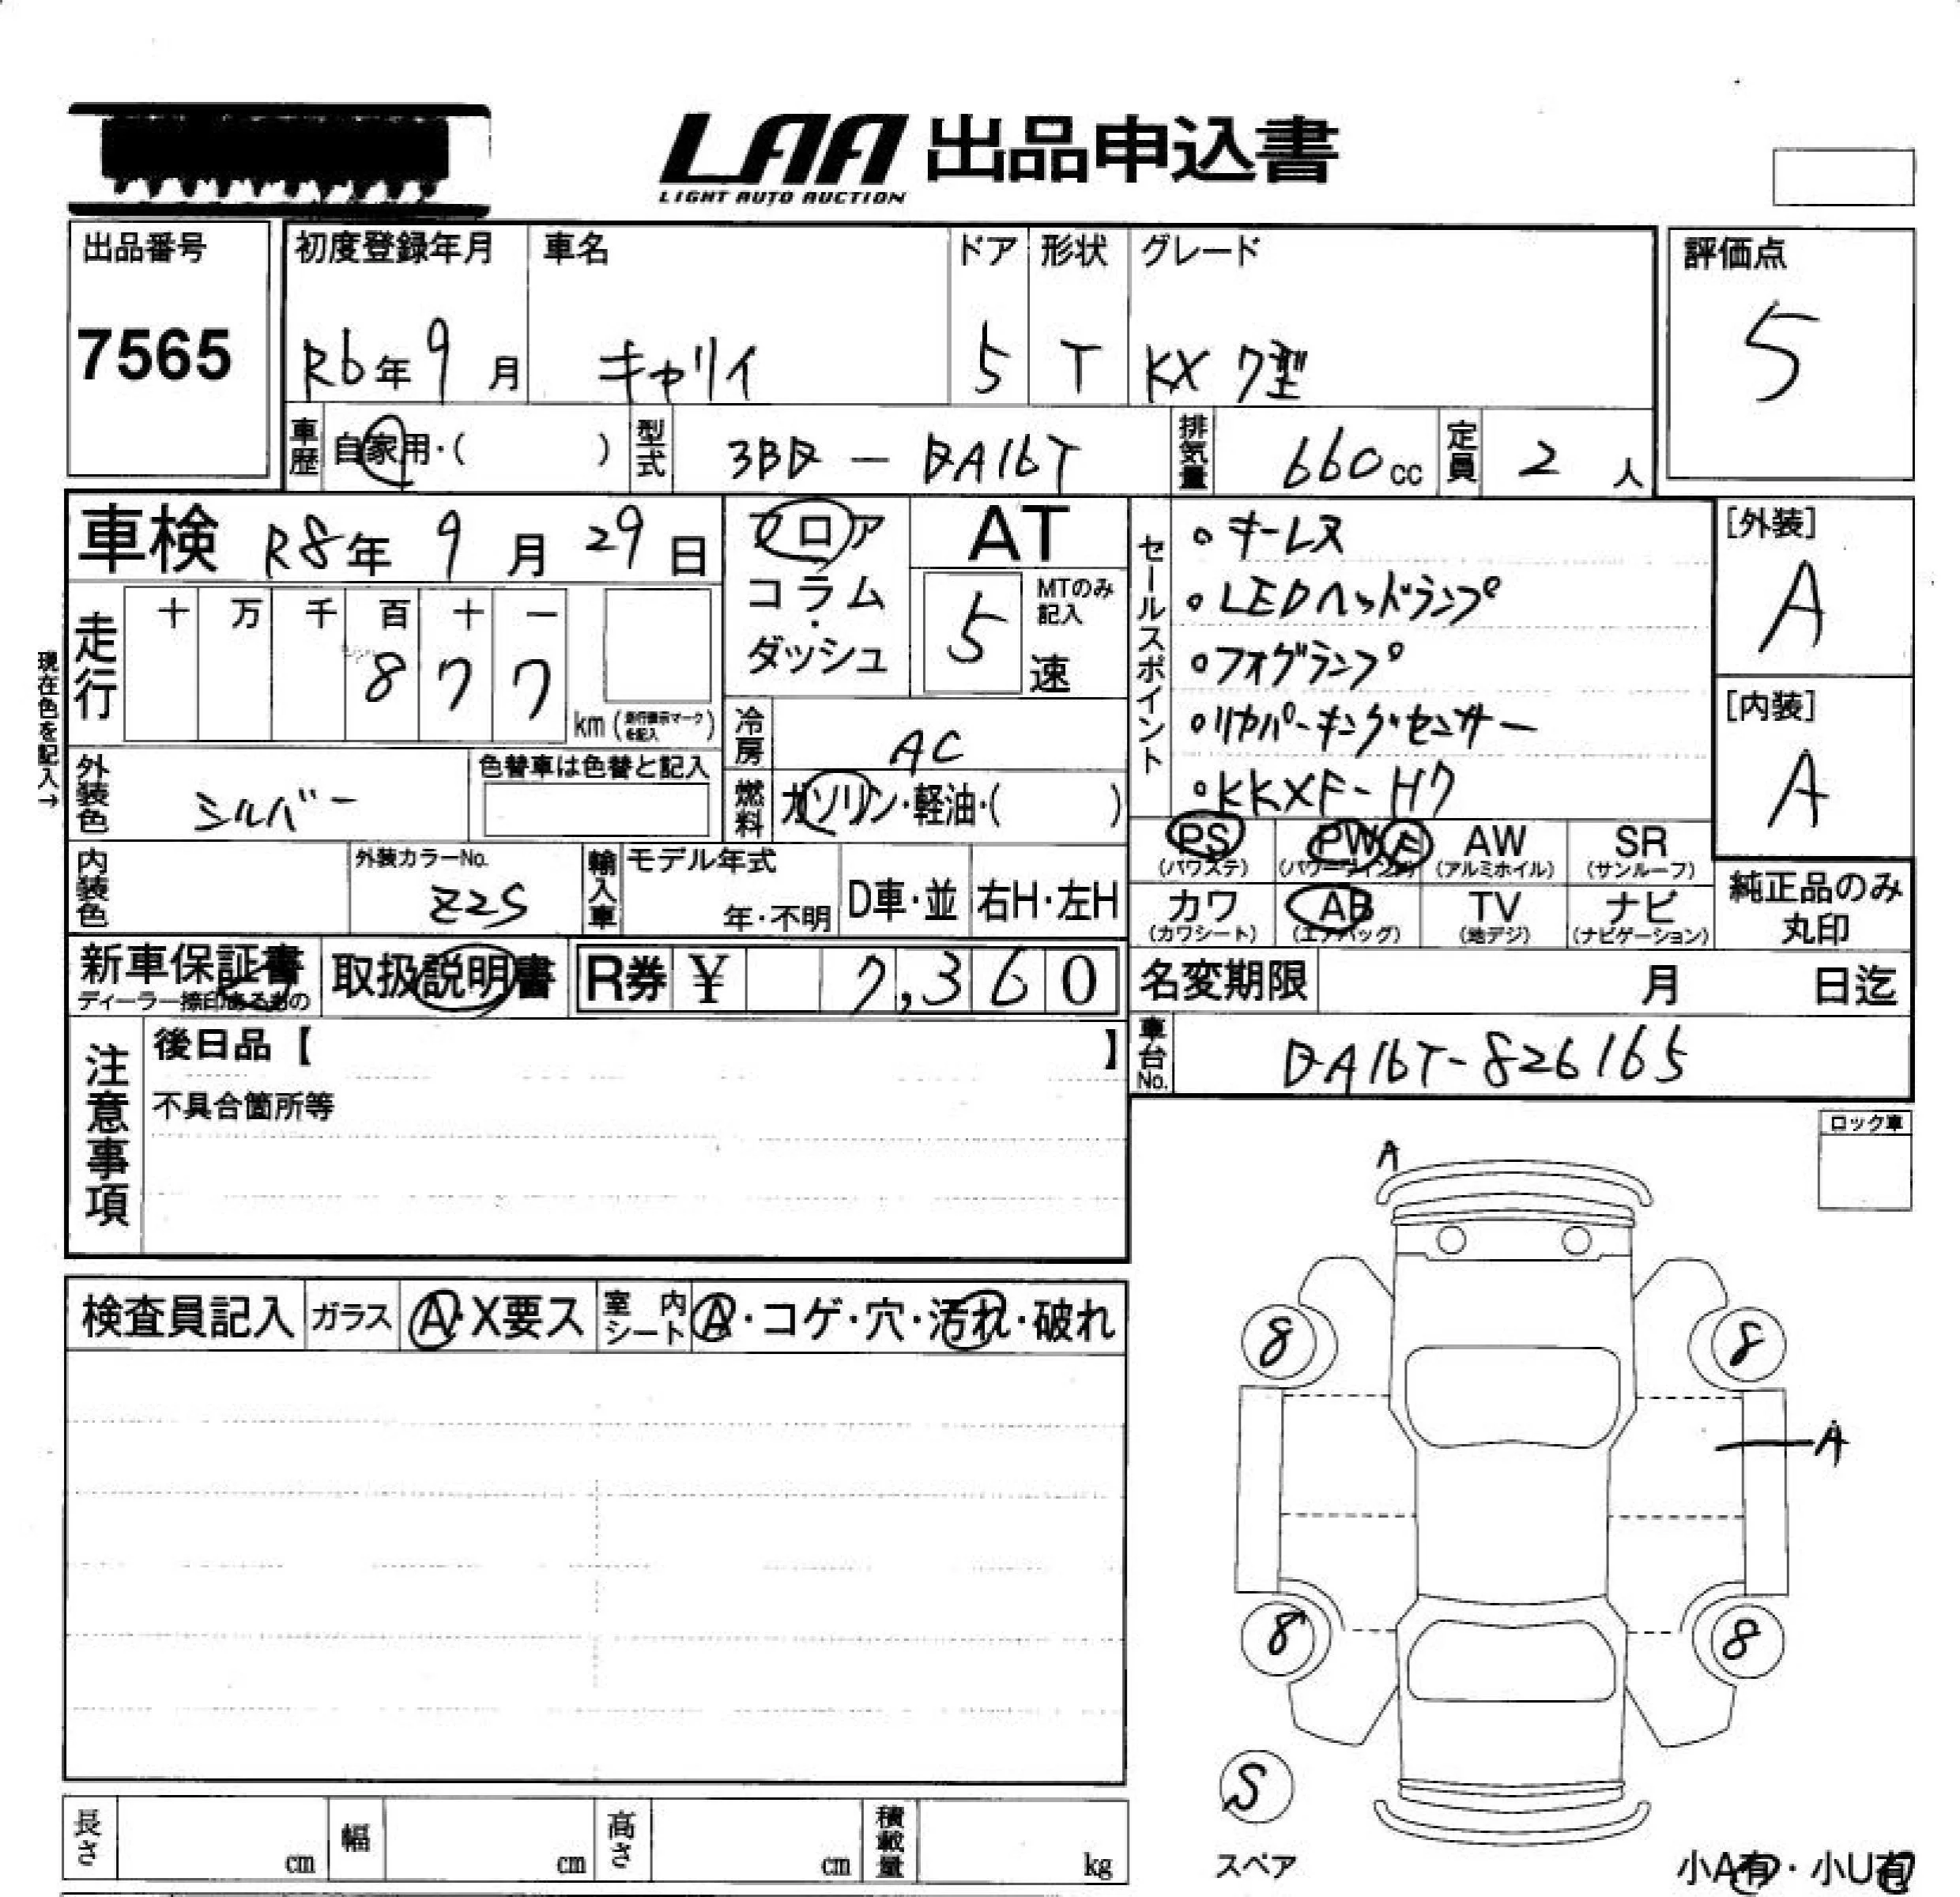 LAA 出品申込書
LIGHT AUTO AUCTION
出品番号 初度登録年月 車名 ドア 形状 グレード 評価点
7565 R6年9月 キャリイ 5 T KX 7型 5
車歴 自家用・( ) 型式 3BD - DA16T 排気量 660cc 定員 2人
車検 R8年 9月 29日 フロア AT セールスポイント ・キーレス [外装]
コラム・ 5 MTのみ記入 ・LEDヘッドランプ A
走行 十 万 千 百 十 一 ダッシュ 速 ・フォグランプ
8 7 7 km(走行表示マークを記入) 冷房 AC ・リヤパーキングセンサー [内装]
現在色を記入→
外装色 シルバー 色替車は色替と記入 燃料 ガソリン・軽油・( ) ・KKXF-H7 A
PS PW F AW SR
(パワステ) (パワーウィンドウ) (アルミホイル) (サンルーフ)
内装色 外装カラーNo. Z2S 輸入車 モデル年式 年・不明 D車・並 右H・左H
カワ AB TV ナビ 純正品のみ丸印
(カワシート) (エアバッグ) (地デジ) (ナビゲーション)
新車保証書 取扱説明書 R券 ¥ 7,360 名変期限 月 日迄
ディーラー捺印あるもの
注意事項 後日品【 】 車台No. DA16T-826165
不具合箇所等
ロック車
A
検査員記入 ガラス A・X要ス 室内シート A・コゲ・穴・汚れ・破れ
8 8
A
8 8
S
長さ cm 幅 cm 高さ cm 積載量 kg スペア 小A有・小U有